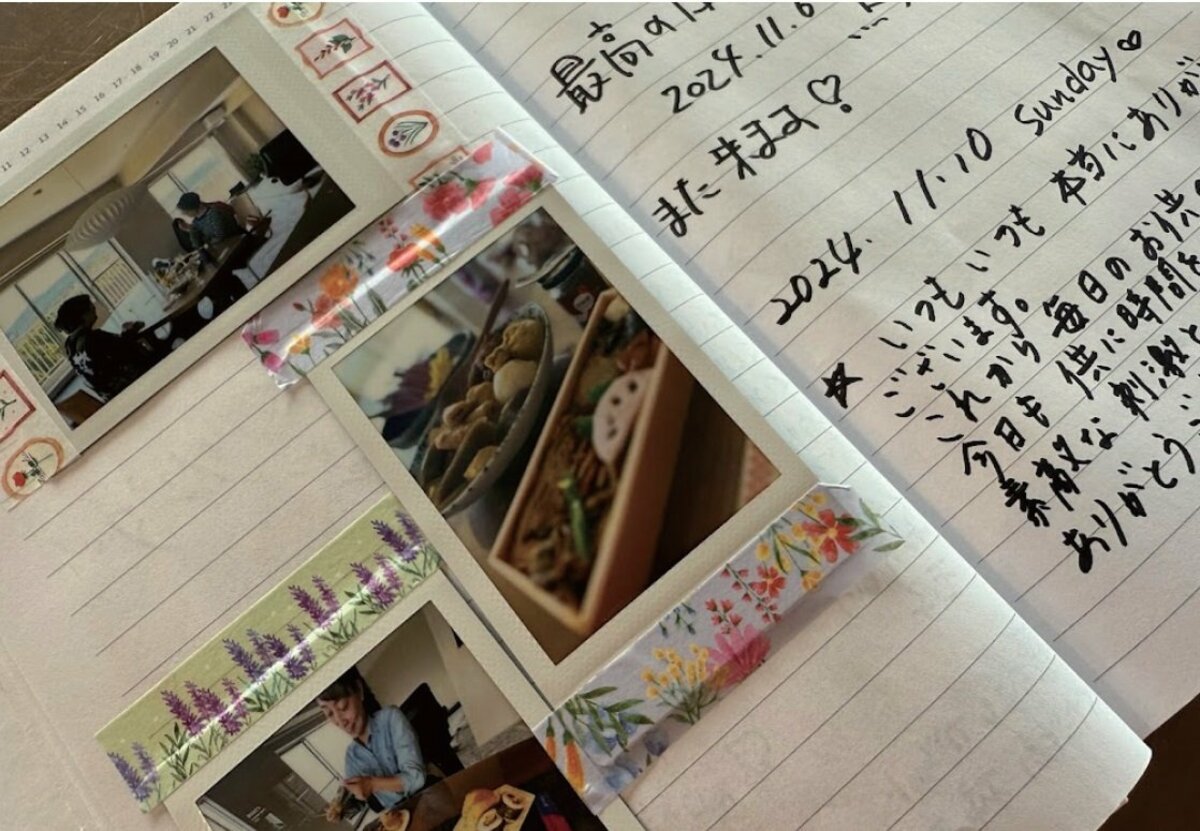 11 12 13 14 15 16 17 18 19 20 21 22
最高の
2024.11.6
また来ます♡
2024.11.10 Sunday♡
いつもいつも 本当にありが
ございます。
★これから毎日のお供
今日も 供に時間を
素敵な刺激と
ありがとう